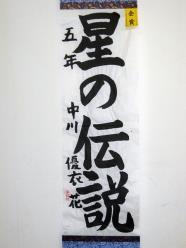 金賞
星の伝説
五年
中川優衣花